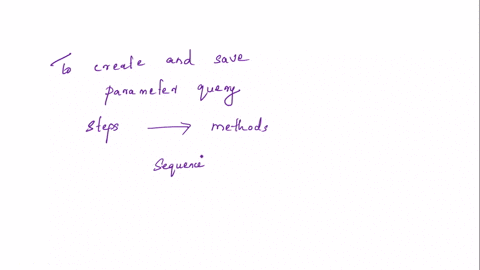 To create and save
parameter query
steps → methods
sequence